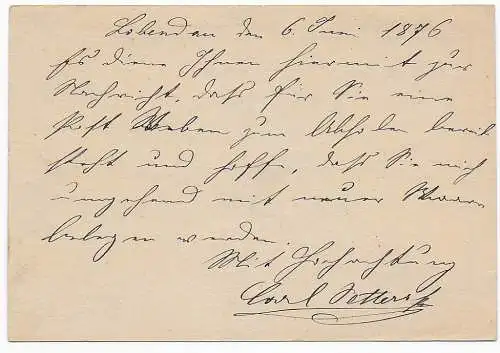 Lobendau den 6 Juni 1876
Es diene Ihnen hiermit zur
Nachricht, daß für Sie eine
Post Weben zum Abholen bereit
steht und hoffe, daß Sie mich
umgehend mit neuer Waare
belegen werden.
Mit Hochachtung
Carl